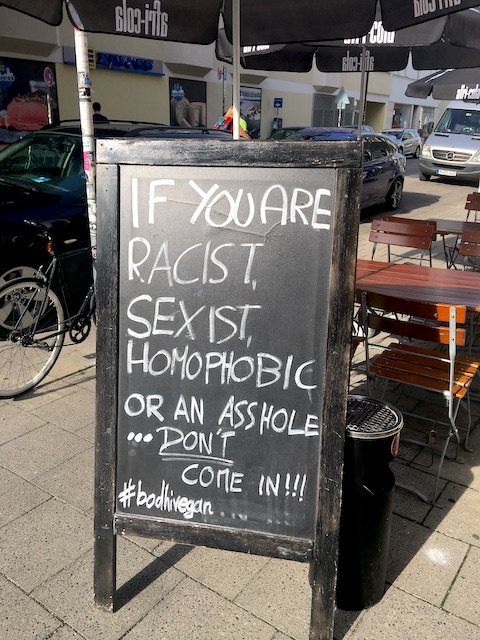 afri-cola
afri-cola
afri-cola
afri-cola
IF YOU ARE
RACIST,
SEXIST,
HOMOPHOBIC
OR AN ASSHOLE
... DON'T
COME IN!!!
#bodhivegan